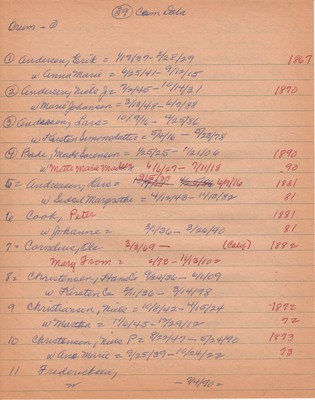 (29) Cem Data
Drum - A
1 Andersen, Erik = 1/17/37 - 2/28/29 1867
w Anna Marie = 6/25/41 - 9/19/15
2 Andersen, Niels J = 7/7/45 - 10/19/31 1870
w Marie Johansen = 3/13/48 - 6/7/88
3 Andersen, Lars = 10/19/16 - 4/25/86
w Kirsten Simonsdatter = 5/4/16 - 5/23/98
4 Bade, Mads Sorensen = 4/25/25 - 1/21/06 1890
w Mette Marie Madsen 6/6/27 - 7/11/18 90
5 = Andersen, Lars = 4/9/16 1881
w Sidsel Margrethe = 4/10/43 - 11/19/82 81
6 Cook, Peter 1881
w Johanne = 3/1/36 - 3/26/90 81
7 = Cornelius, Ole 3/2/69 — (Calif) 1882
Mary From = 6/73 - 11/13/02
8 = Christensen, Hans C 9/24/36 - 4/1/09
w Kirsten Em 2/11/36 - 3/14/98
9 Christiansen, Niels = 10/8/42 - 4/15/24 1872
w Martha = 11/6/45 - 12/29/12 72
10 Christensen, Niels P = 8/22/47 - 5/24/90 1873
w Ana Marie = 9/25/39 - 10/24/22 73
11 Fredericksen,
w - 2/4/90 =